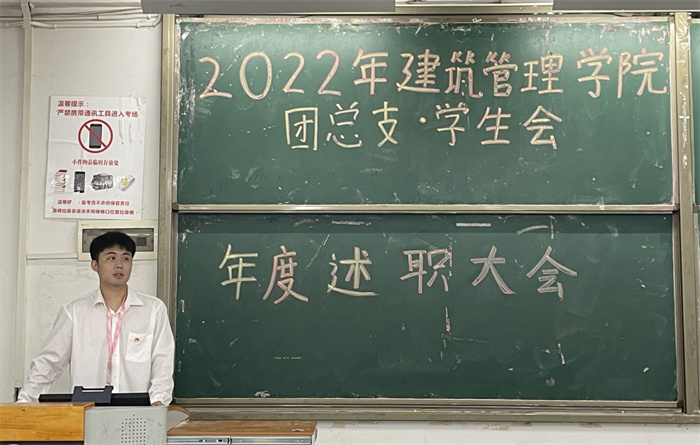 2022年建筑管理学院
团总支·学生会
年度述职大会
温馨提示：
严禁携带通讯工具进入考场
小件物品临时存放处